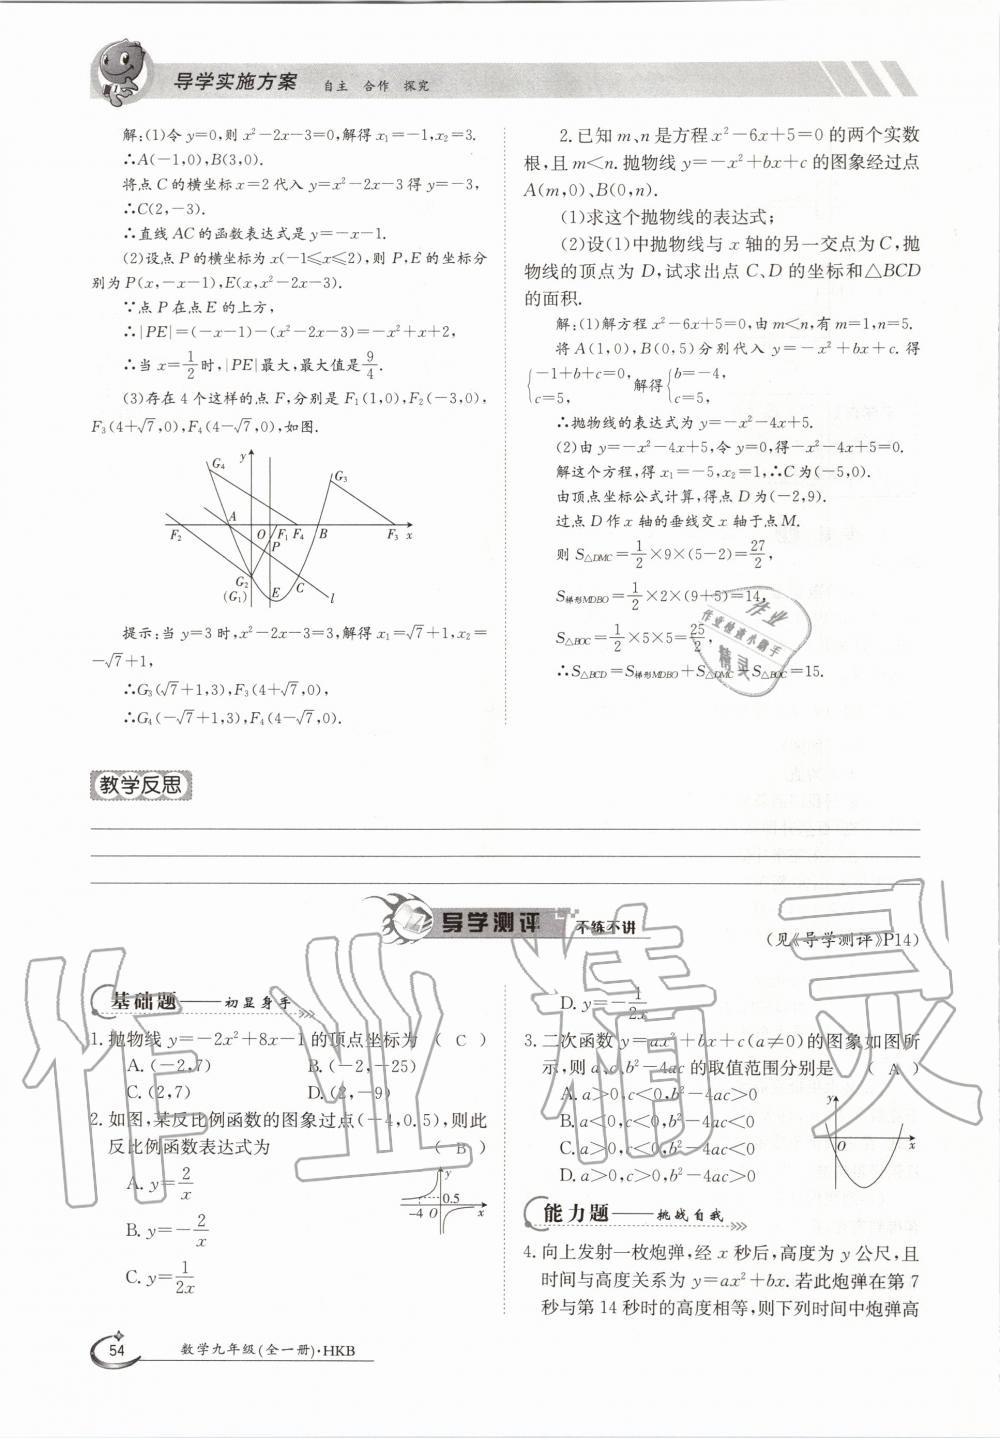 导学实施方案 自主 合作 探究
解:(1)令 y=0,则 x²-2x-3=0,解得 x₁=-1,x₂=3.
∴A(-1,0),B(3,0).
将点 C 的横坐标 x=2 代入 y=x²-2x-3 得 y=-3,
∴C(2,-3).
∴直线 AC 的函数表达式是 y=-x-1.
(2)设点 P 的横坐标为 x(-1≤x≤2),则 P,E 的坐标分
别为 P(x,-x-1),E(x,x²-2x-3).
∵点 P 在点 E 的上方,
∴|PE|=(-x-1)-(x²-2x-3)=-x²+x+2,
∴当 x=1/2 时,|PE|最大,最大值是 9/4.
(3)存在 4 个这样的点 F,分别是 F₁(1,0),F₂(-3,0),
F₃(4+√7,0),F₄(4-√7,0),如图.
G₄ y G₃
A O F₁ F₄ B F₃ x F₂
P
G₂ (G₁) E C l
提示:当 y=3 时,x²-2x-3=3,解得 x₁=√7+1,x₂=
-√7+1,
∴G₃(√7+1,3),F₃(4+√7,0),
∴G₄(-√7+1,3),F₄(4-√7,0).
2.已知 m、n 是方程 x²-6x+5=0 的两个实数
根,且 m<n. 抛物线 y=-x²+bx+c 的图象经过点
A(m,0)、B(0,n).
(1)求这个抛物线的表达式;
(2)设(1)中抛物线与 x 轴的另一交点为 C,抛
物线的顶点为 D,试求出点 C、D 的坐标和△BCD
的面积.
解:(1)解方程 x²-6x+5=0,由 m<n,有 m=1,n=5.
将 A(1,0),B(0,5)分别代入 y=-x²+bx+c. 得
{-1+b+c=0, c=5, 解得 {b=-4, c=5,
∴抛物线的表达式为 y=-x²-4x+5.
(2)由 y=-x²-4x+5,令 y=0,得-x²-4x+5=0.
解这个方程,得 x₁=-5,x₂=1,∴C 为(-5,0).
由顶点坐标公式计算,得点 D 为(-2,9).
过点 D 作 x 轴的垂线交 x 轴于点 M.
则 S△DMC=1/2×9×(5-2)=27/2,
S梯形MDBO=1/2×2×(9+5)=14,
S△BOC=1/2×5×5=25/2,
∴S△BCD=S梯形MDBO+S△DMC-S△BOC=15.
作业
作业检查小助手
精灵
教学反思
导学测评 不练不讲
(见《导学测评》P14)
作业精灵
基础题——初显身手
1. 抛物线 y=-2x²+8x-1 的顶点坐标为 ( C )
A. (-2,7) B. (-2,-25)
C. (2,7) D. (2,-9)
2. 如图,某反比例函数的图象过点(-4,0.5),则此
反比例函数表达式为 ( B )
A. y=2/x
B. y=-2/x
C. y=1/2x
y 0.5 -4 O x
D. y=-1/2x
3. 二次函数 y=ax²+bx+c(a≠0)的图象如图所
示,则 a、c、b²-4ac 的取值范围分别是 ( A )
A. a>0,c<0,b²-4ac>0
B. a<0,c<0,b²-4ac<0
C. a>0,c<0,b²-4ac<0
D. a>0,c>0,b²-4ac>0
y O x
能力题——挑战自我
4. 向上发射一枚炮弹,经 x 秒后,高度为 y 公尺,且
时间与高度关系为 y=ax²+bx. 若此炮弹在第 7
秒与第 14 秒时的高度相等,则下列时间中炮弹高
54 数学九年级(全一册)·HKB